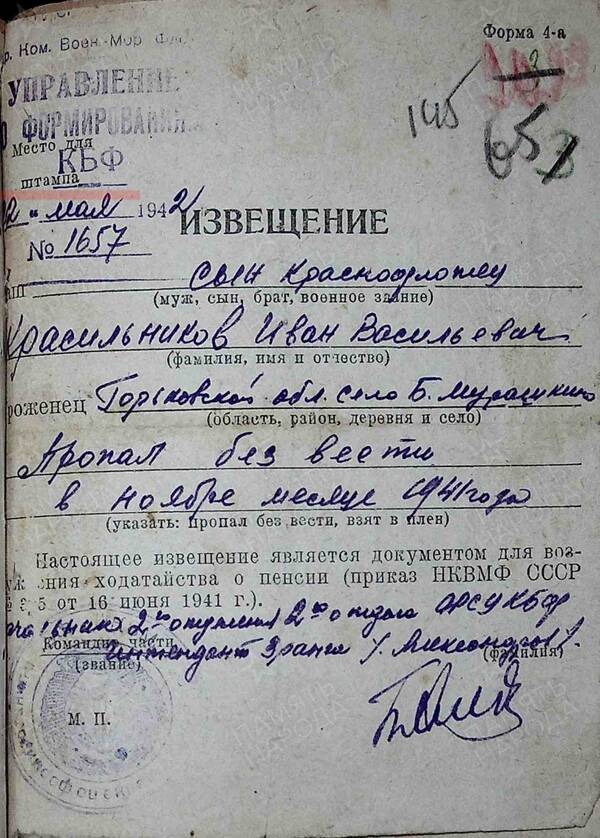 Форма 4-а
Ком. Воен-Мор
УПРАВЛЕНИЕ
ФОРМИРОВАНИЯ
Место для
КБФ
штампа
145
653
мая 1942
ИЗВЕЩЕНИЕ
№ 1657
сын краснофлотец
(муж, сын, брат, военное звание)
Красильников Иван Васильевич
(фамилия, имя и отчество)
роженец Горьковской обл. село Б. Мурашкино
(область, район, деревня и село)
Пропал без вести
в ноябре месяце 1941 года
(указать: пропал без вести, взят в плен)
Настоящее извещение является документом для воз-
ния ходатайства о пенсии (приказ НКВМФ СССР
от 16 июня 1941 г.).
2го отделения 2го отдела ОРСУ КБФ
Командир части
интендант 3 ранга /Александров/
(звание)
(фамилия)
М. П.